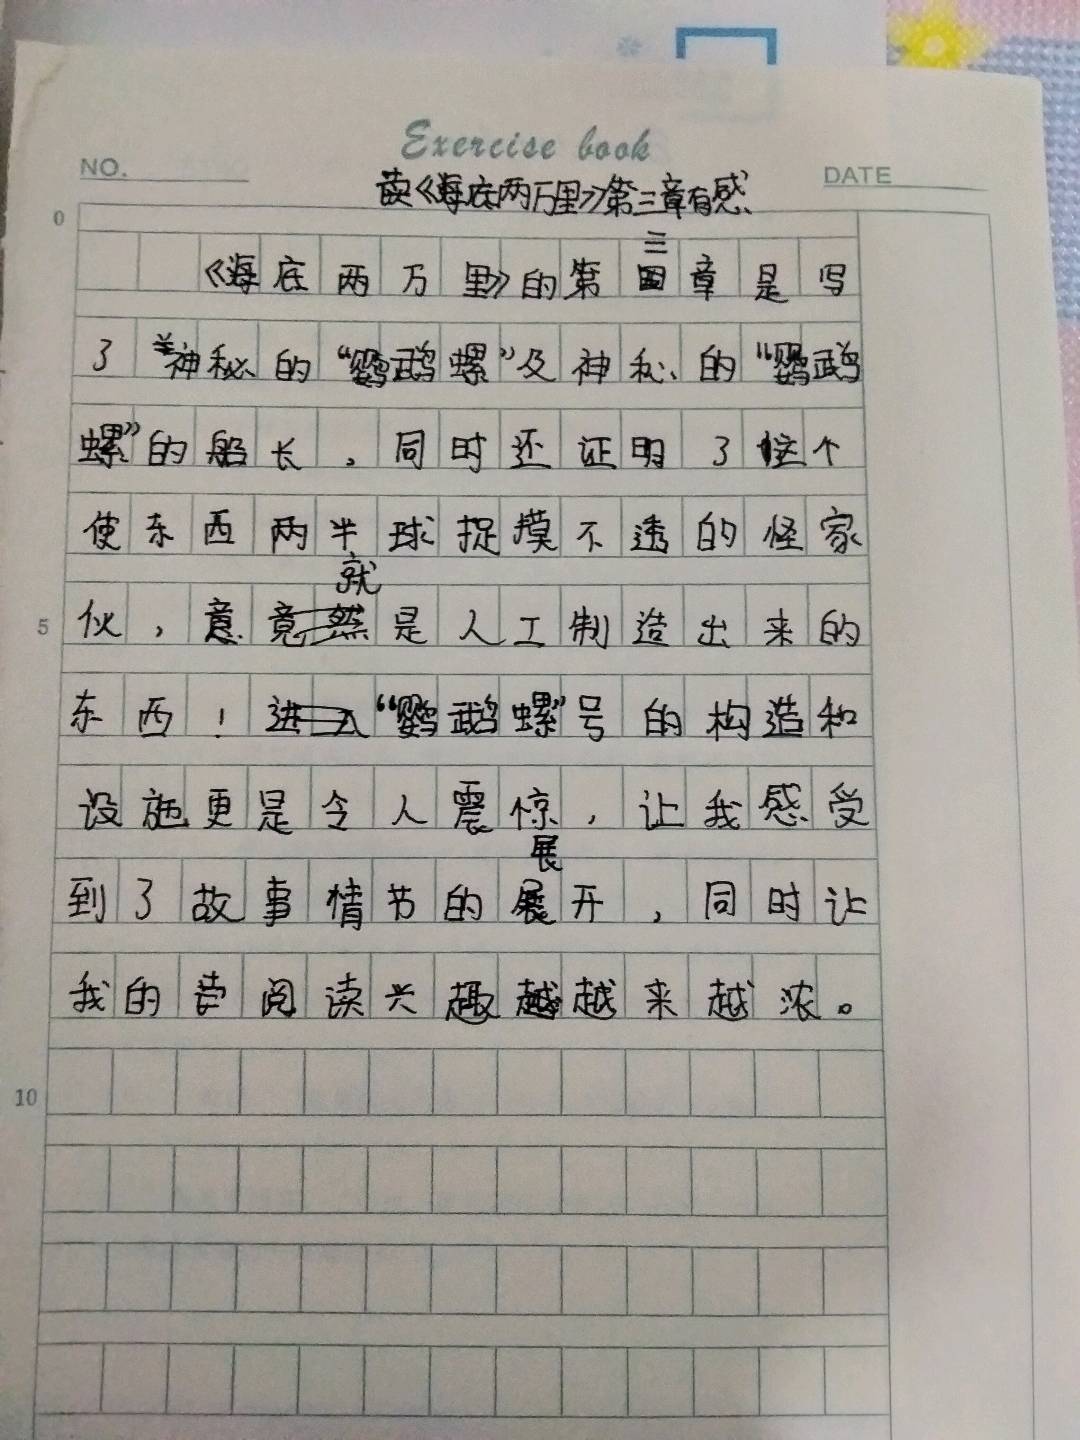 Exercise book
NO.
DATE
读《海底两万里》第三章有感
0
《海底两万里》的第三章是写
了神秘的“鹦鹉螺”及神秘的“鹦鹉
螺”的船长，同时还证明了这个
使东西两半球捉摸不透的怪家
伙，意就是人工制造出来的
5
东西！“鹦鹉螺”号的构造和
设施更是令人震惊，让我感受
到了故事情节的展开，同时让
我的阅读兴趣越越来越浓。
10